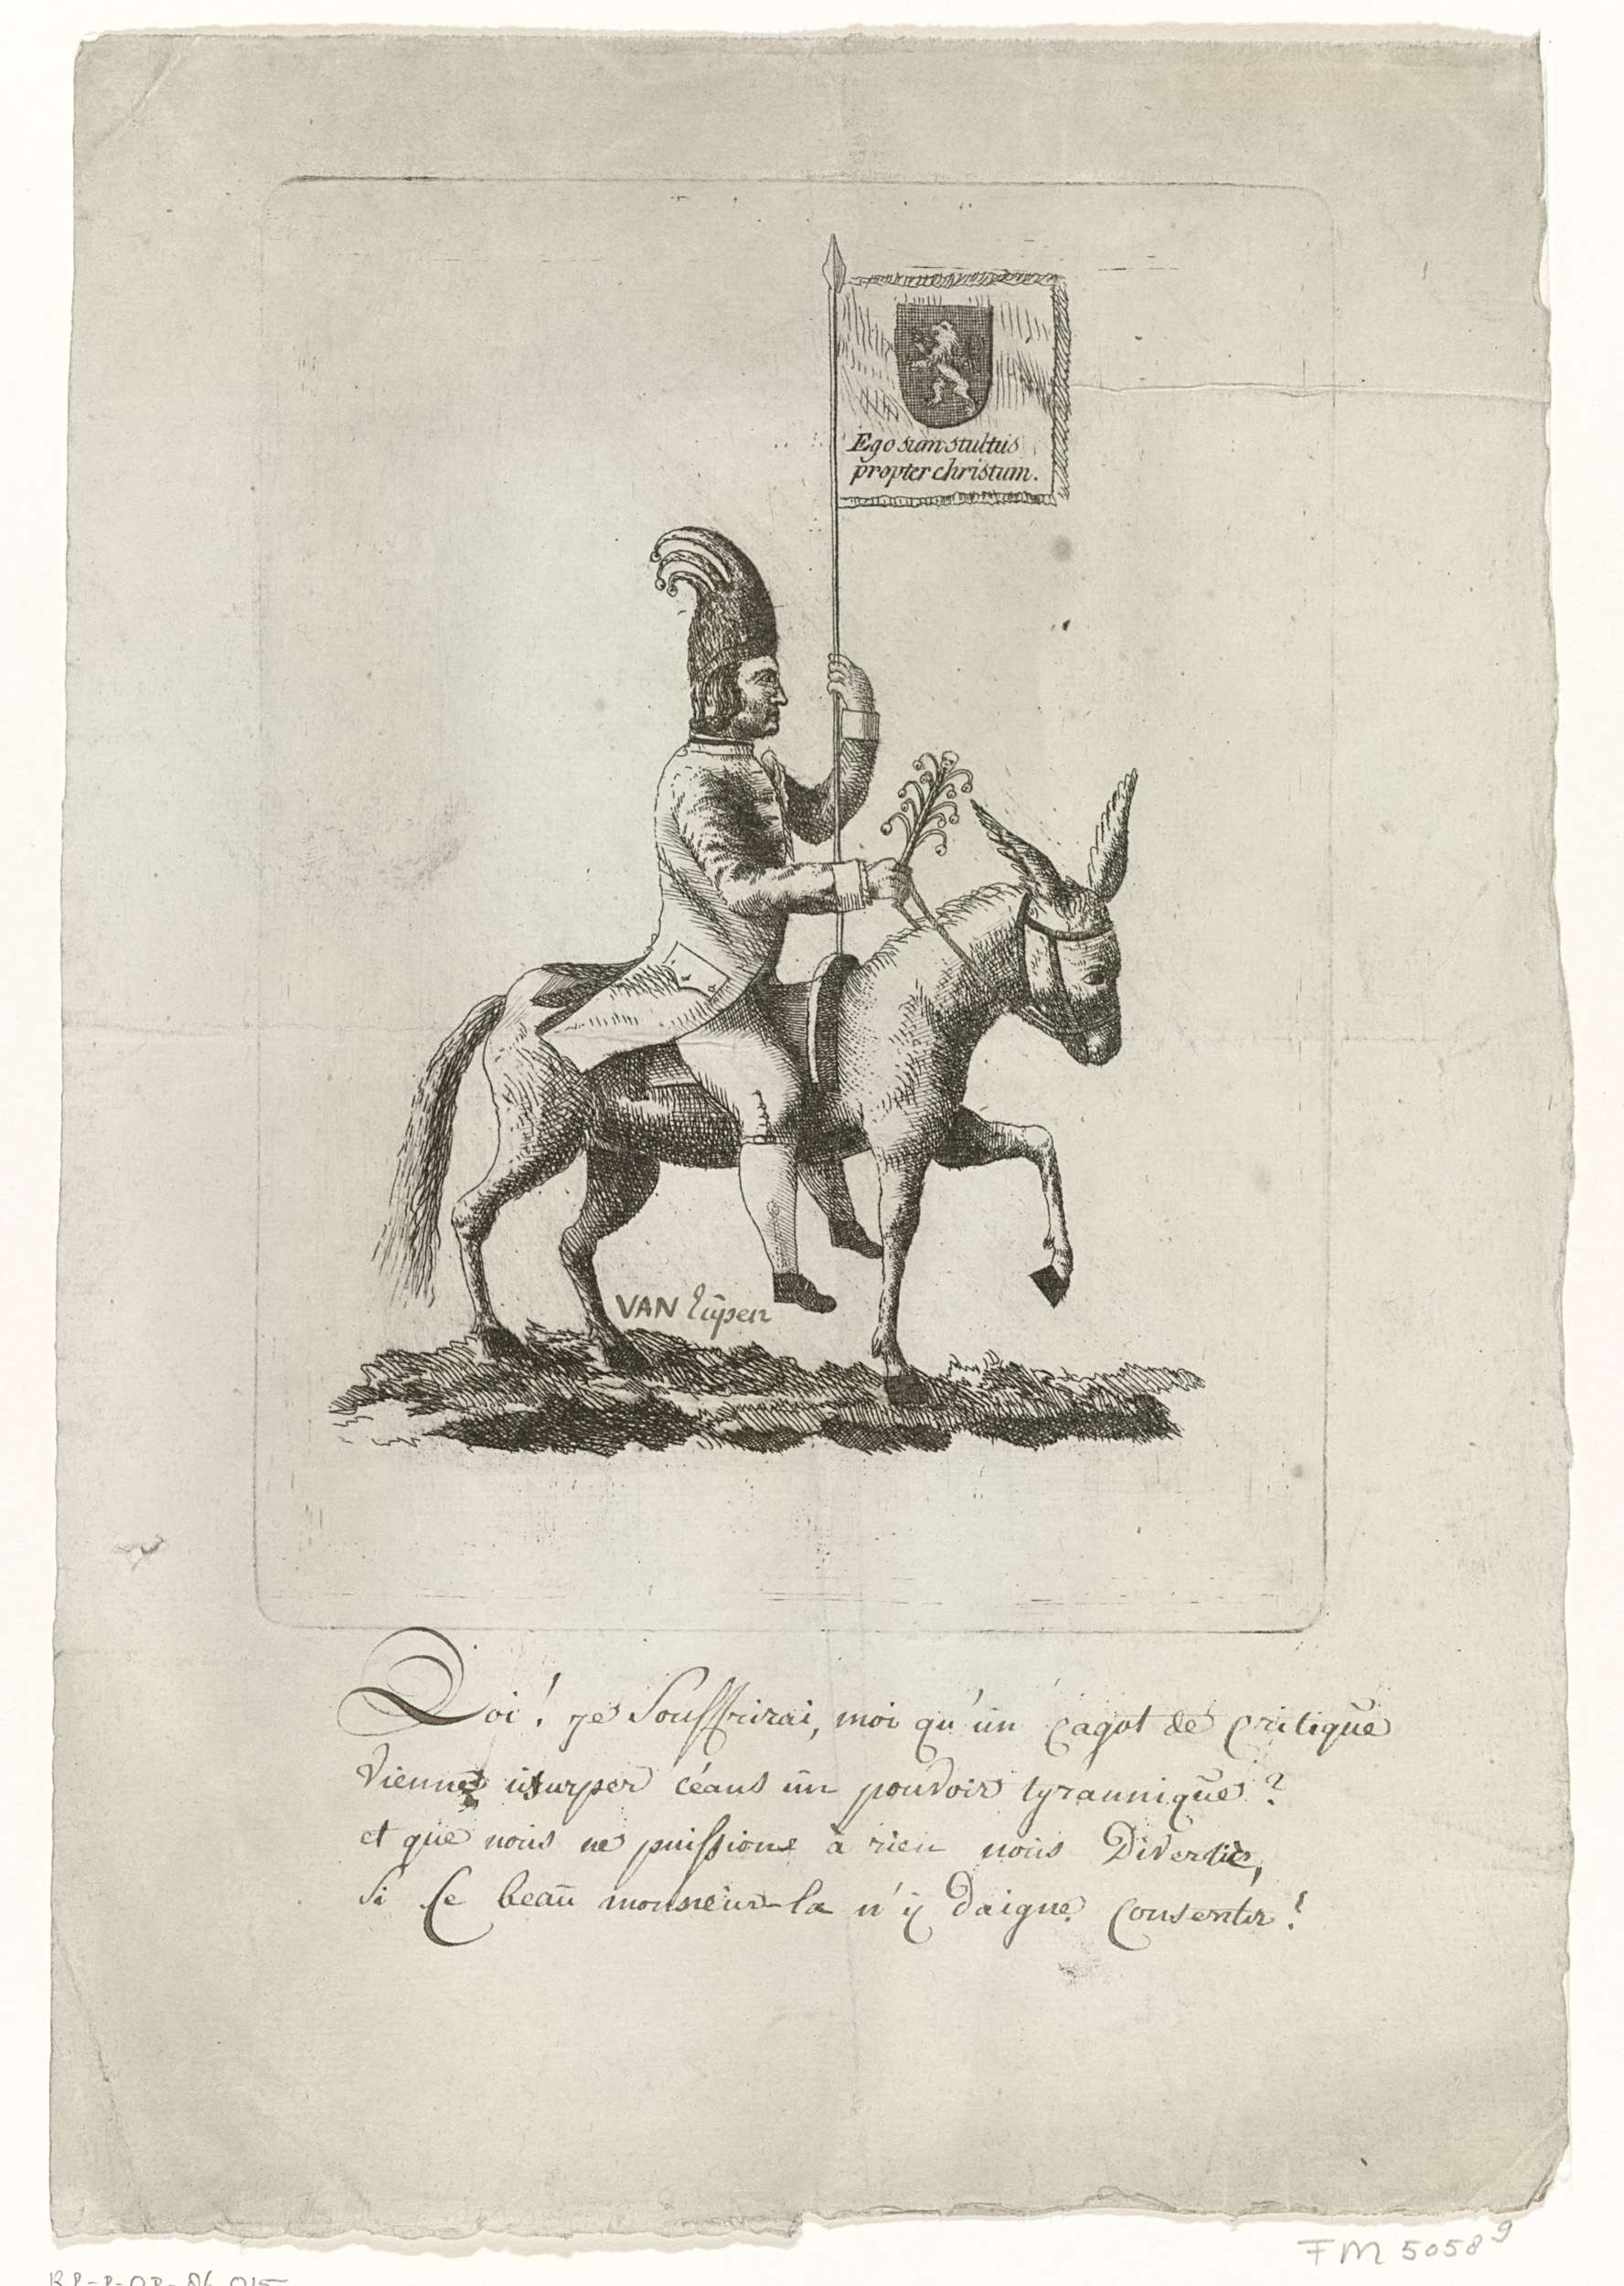 Ego sum stultus
propter christum.
VAN Eupen
Qoi! je Souffrirai, moi qu'ùn cagot de critiqùe
Vienne ùsurper céans ùn pouvoir tyranniqùe?
et qùe noùs ne puissions à rien noùs Divertir,
Si Ce beaù monsieùr-la n'ij daigne Consentir!
FM 5058 9
RP-P-OB-86.015